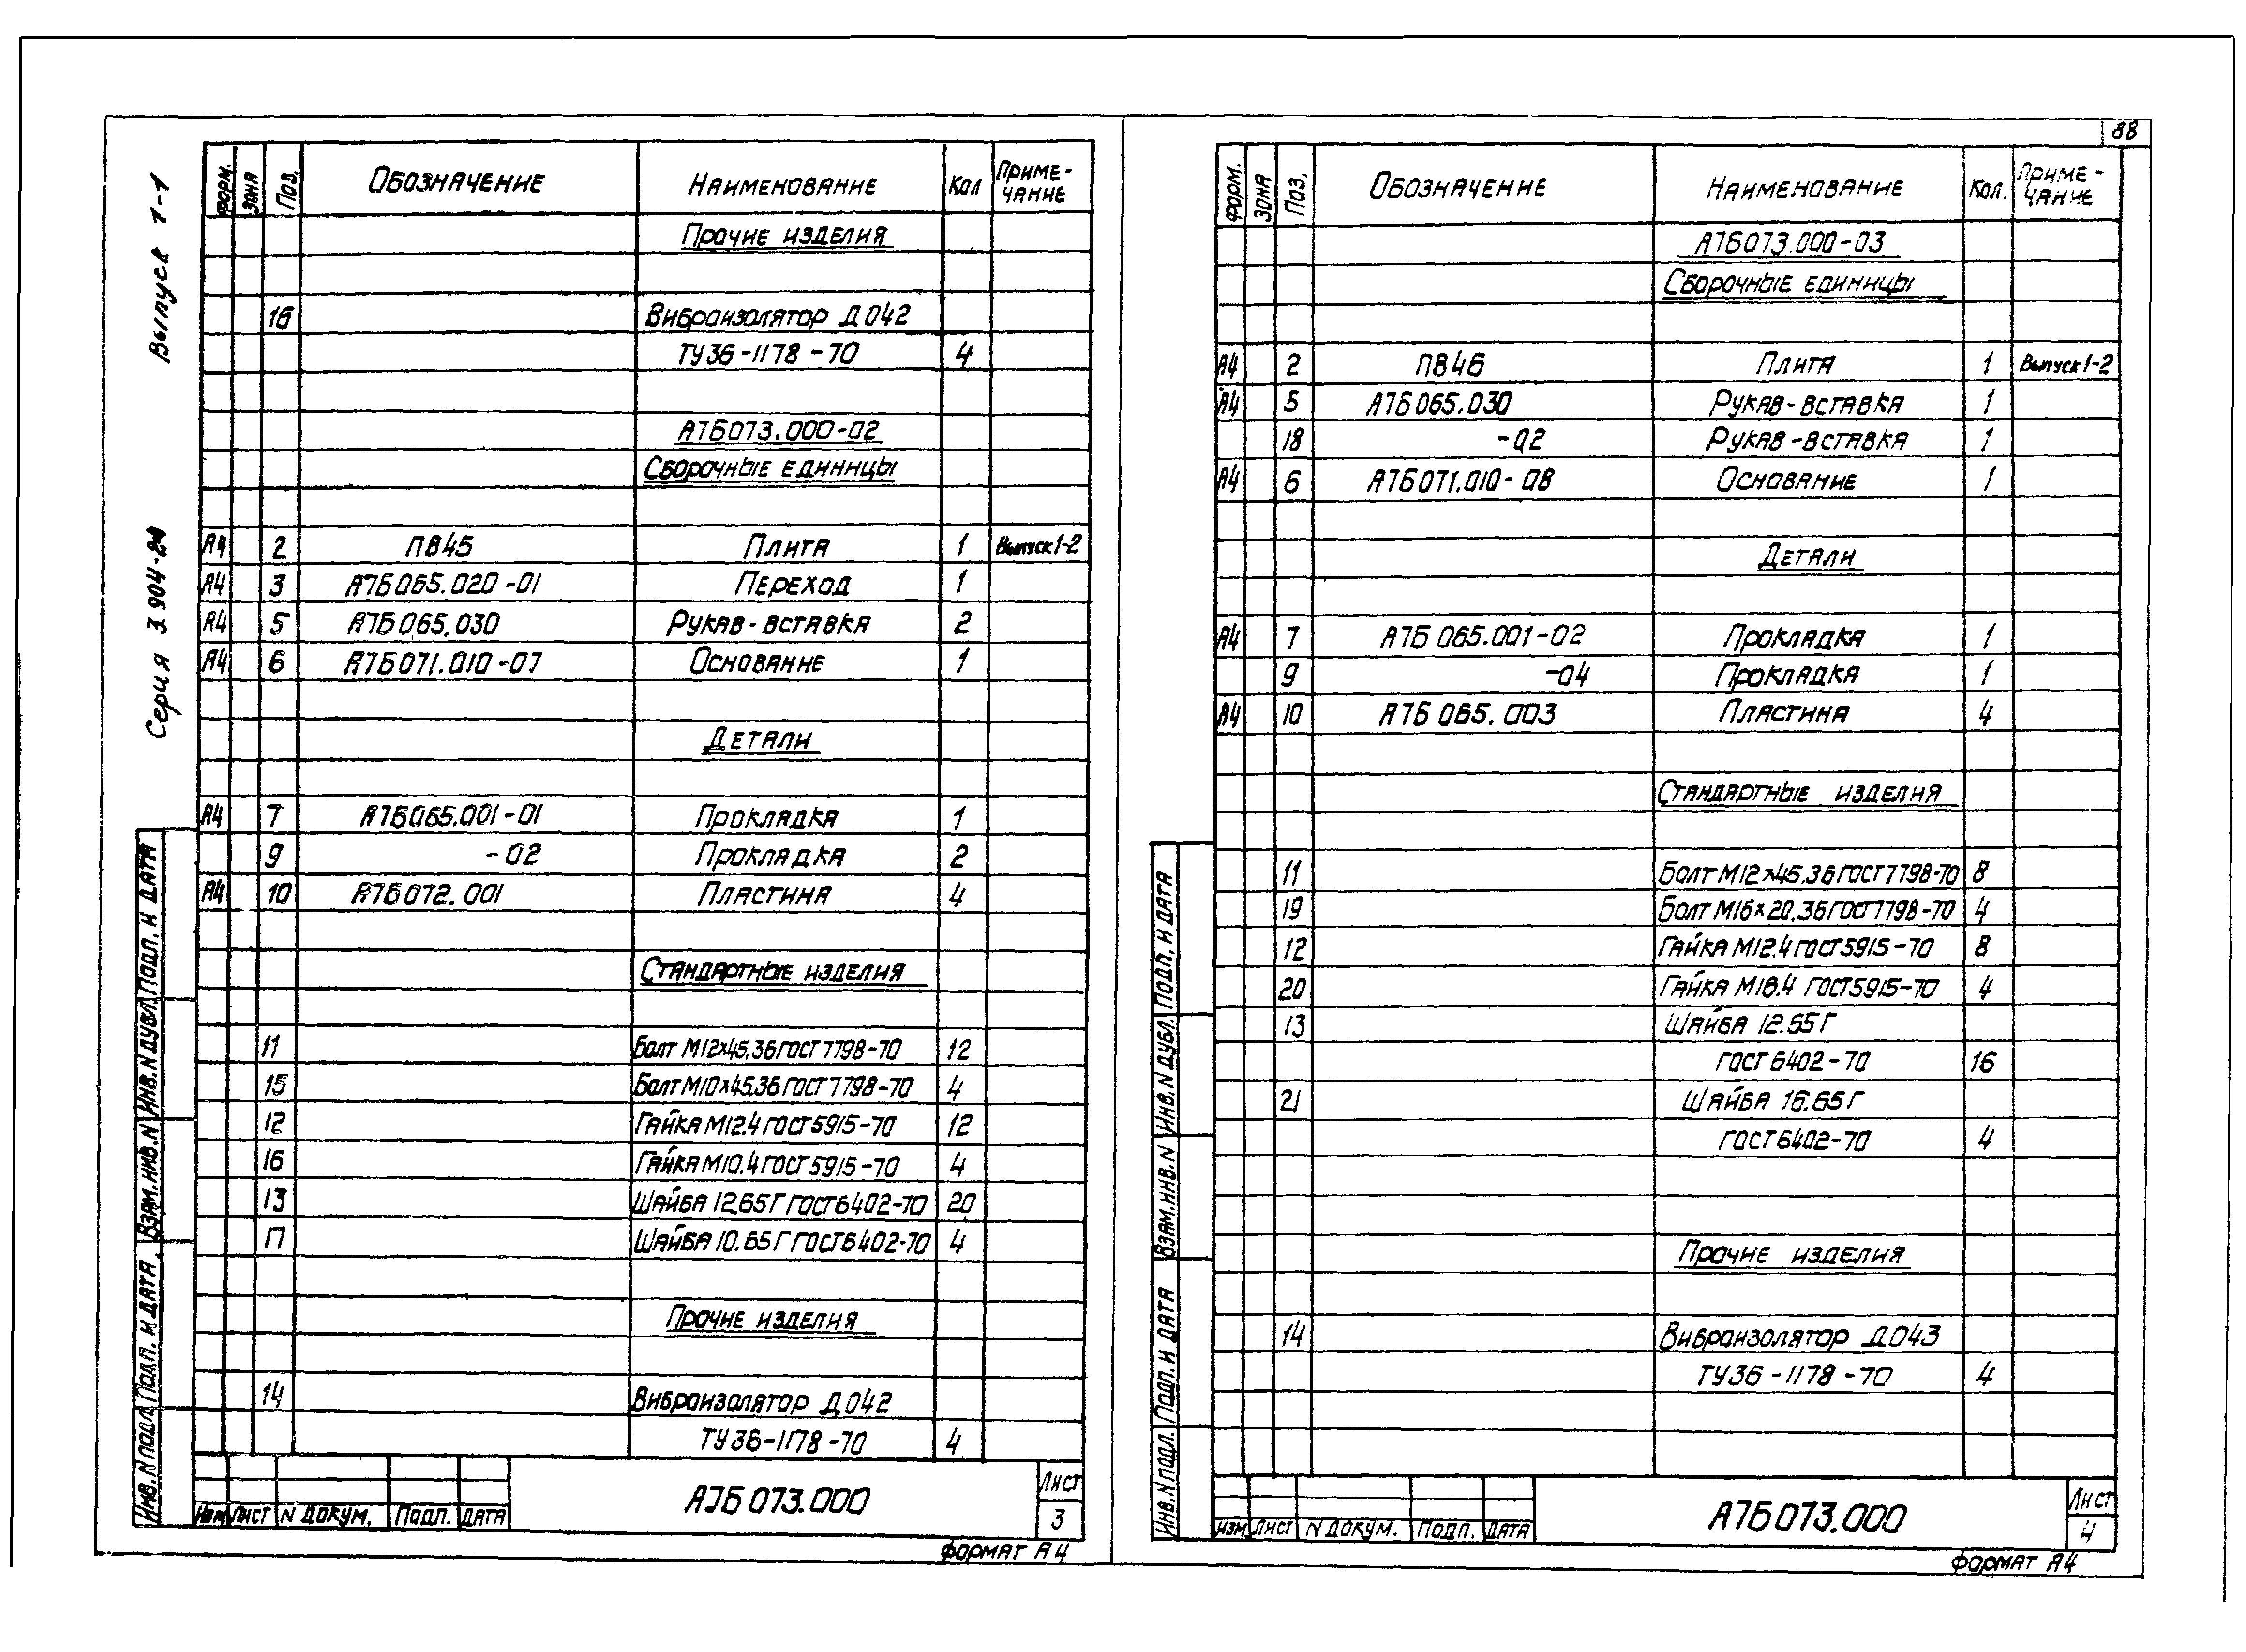 88
Выпуск 1-1
Серия 3.904-21
Форм. Зона Поз. Обозначение Наименование Кол Приме-
чание
Прочие изделия
16 Виброизолятор Д042
ТУ36-1178-70 4
А7Б073.000-02
Сборочные единицы
А4 2 П845 Плита 1 Выпуск 1-2
А4 3 А7Б065.020-01 Переход 1
А4 5 А7Б065.030 Рукав-вставка 2
А4 6 А7Б071.010-07 Основание 1
Детали
А4 7 А7Б065.001-01 Прокладка 1
9 -02 Прокладка 2
А4 10 А7Б072.001 Пластина 4
Стандартные изделия
11 Болт М12х45.36 ГОСТ 7798-70 12
15 Болт М10х45.36 ГОСТ 7798-70 4
12 Гайка М12.4 ГОСТ 5915-70 12
16 Гайка М10.4 ГОСТ 5915-70 4
13 Шайба 12.65Г ГОСТ 6402-70 20
17 Шайба 10.65Г ГОСТ 6402-70 4
Прочие изделия
14 Виброизолятор Д042
ТУ36-1178-70 4
Инв.N подл. Подп. и дата Взам.инв.N Инв.N дубл. Подп. и дата
Изм Лист N докум. Подп. Дата
А7Б073.000
Лист
3
Формат А4
Форм. Зона Поз. Обозначение Наименование Кол. Приме-
чание
А7Б073.000-03
Сборочные единицы
А4 2 П846 Плита 1 Выпуск 1-2
А4 5 А7Б065.030 Рукав-вставка 1
18 -02 Рукав-вставка 1
А4 6 А7Б071.010-08 Основание 1
Детали
А4 7 А7Б065.001-02 Прокладка 1
9 -04 Прокладка 1
А4 10 А7Б065.003 Пластина 4
Стандартные изделия
11 Болт М12х45.36 ГОСТ 7798-70 8
19 Болт М16х20.36 ГОСТ 7798-70 4
12 Гайка М12.4 ГОСТ 5915-70 8
20 Гайка М16.4 ГОСТ 5915-70 4
13 Шайба 12.65Г
ГОСТ 6402-70 16
21 Шайба 16.65Г
ГОСТ 6402-70 4
Прочие изделия
14 Виброизолятор Д043
ТУ36-1178-70 4
Инв.N подл. Подп. и дата Взам.инв.N Инв.N дубл. Подп. и дата
Изм Лист N докум. Подп. Дата
А7Б073.000
Лист
4
Формат А4